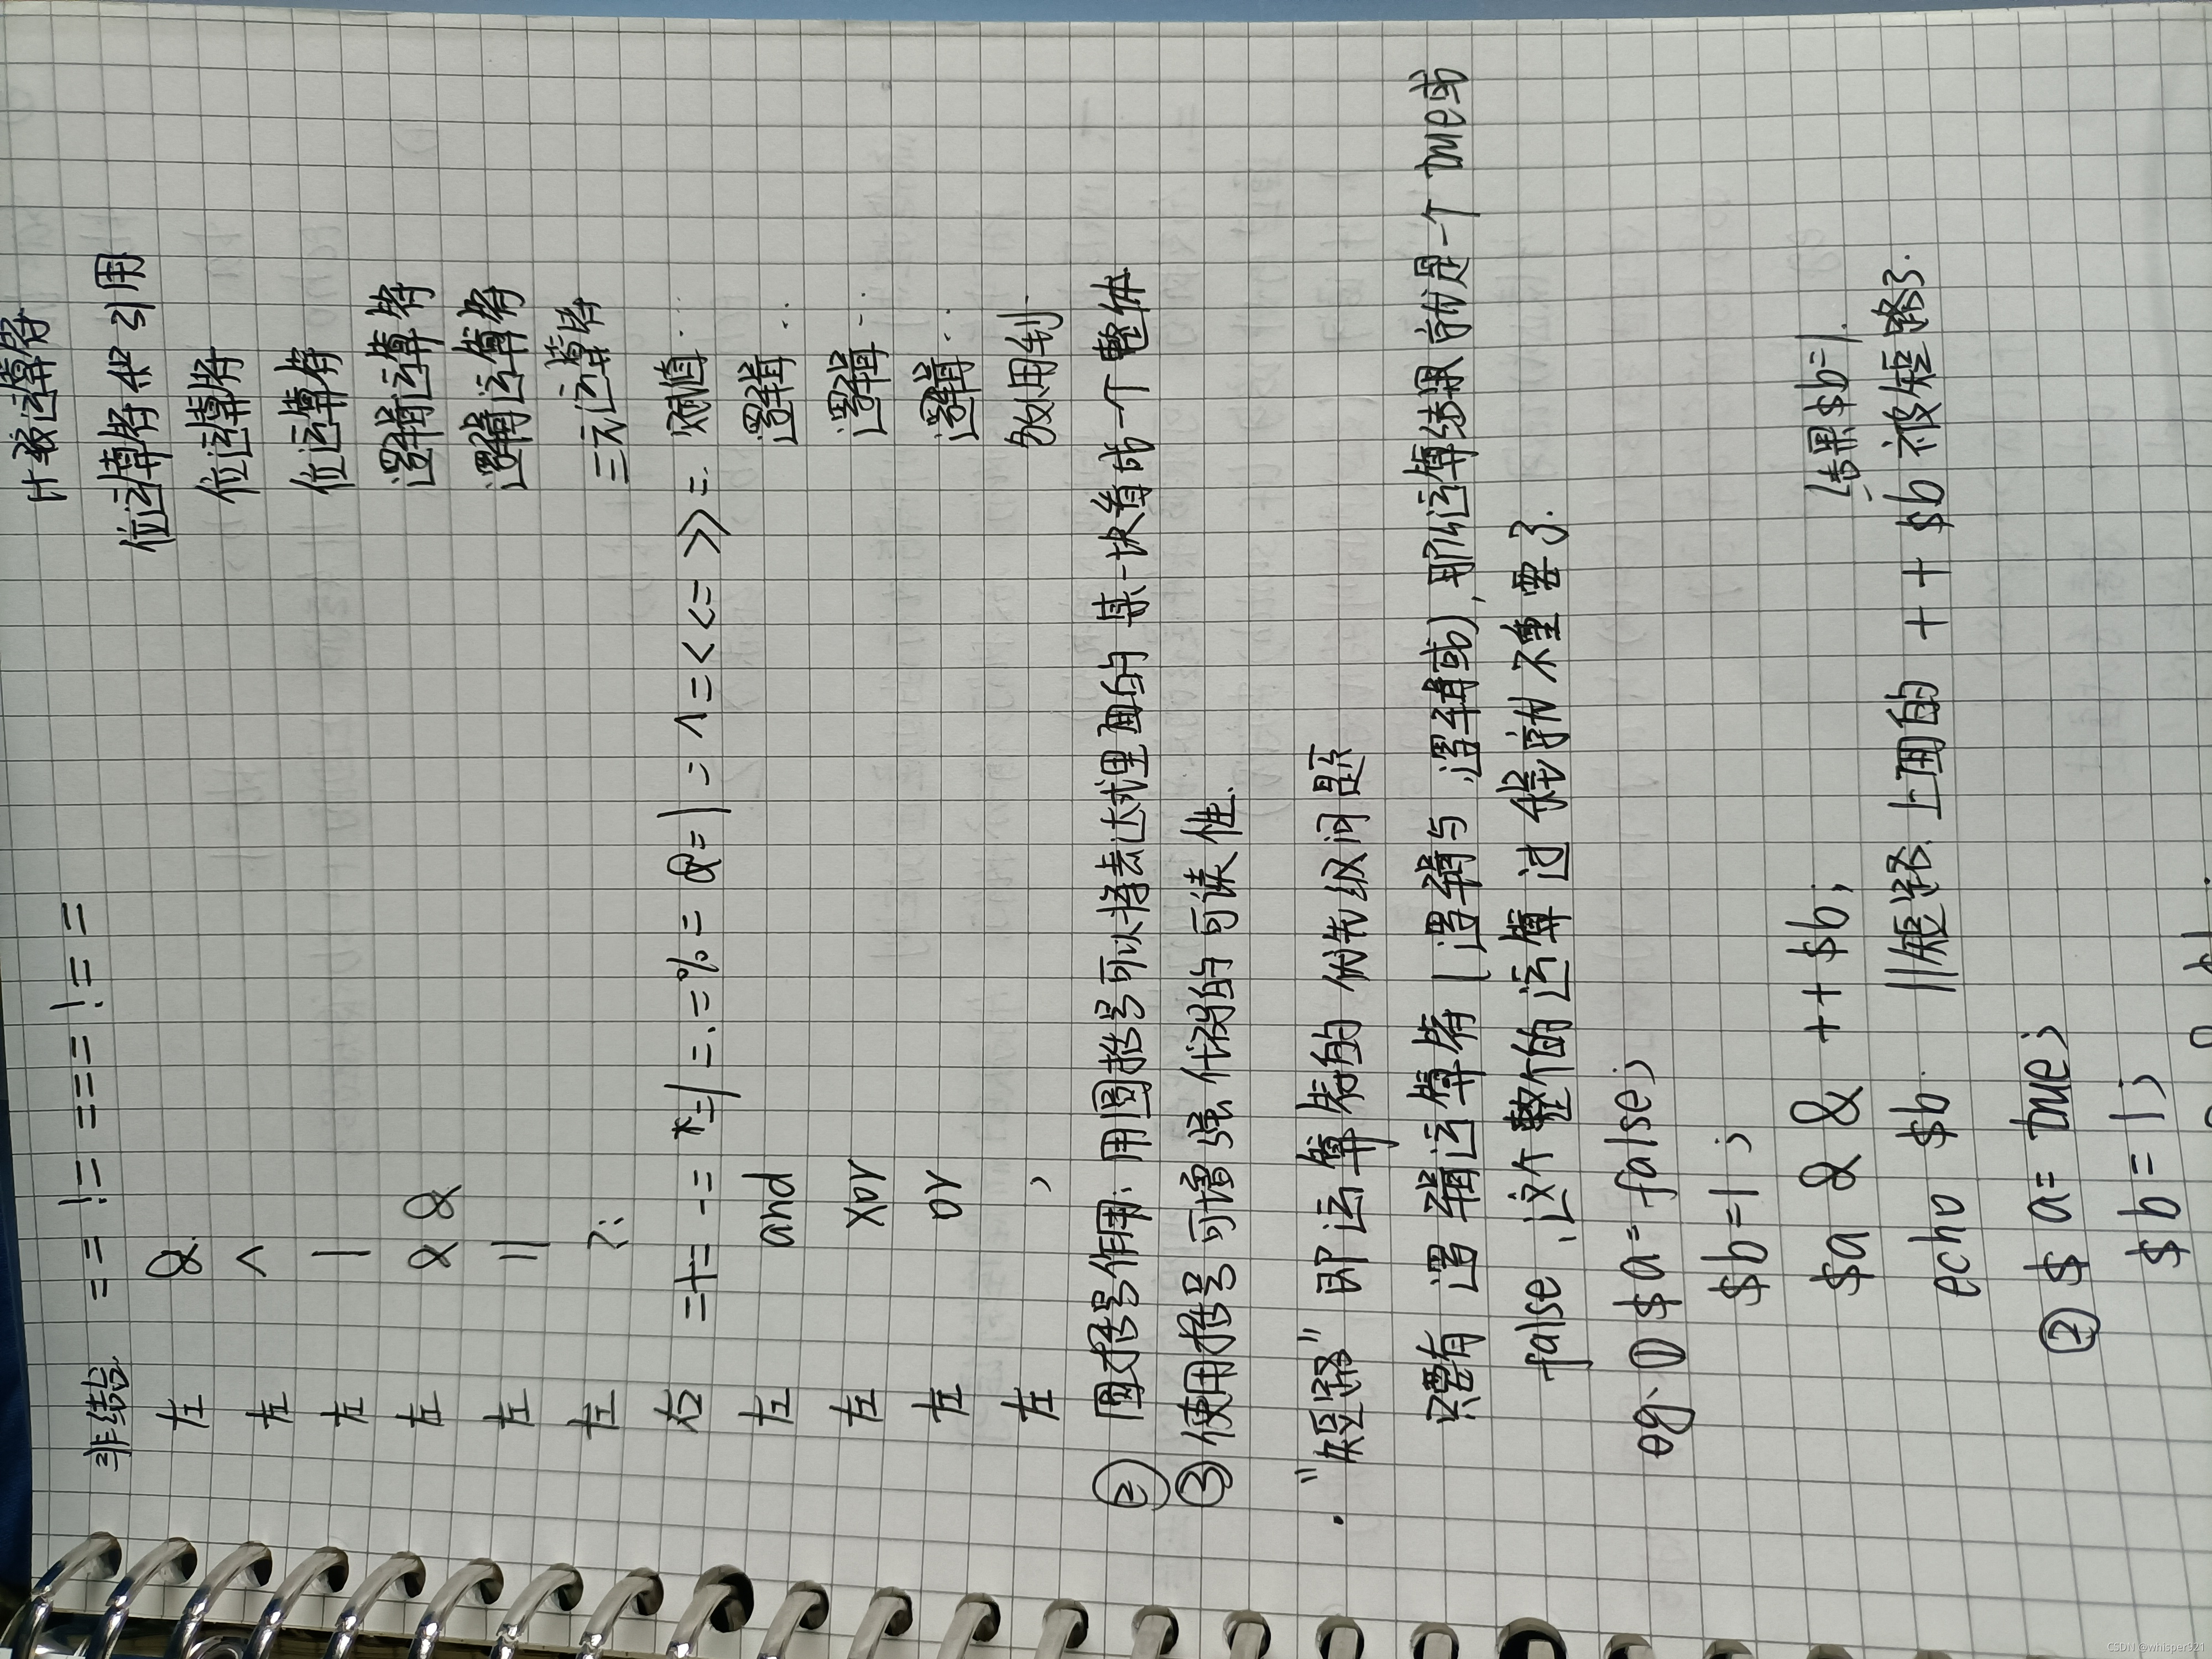 非结合 == != === !== 比较运算符
左 & 位运算符和引用
左 ^ 位运算符
左 | 位运算符
左 && 逻辑运算符
左 || 逻辑运算符
左 ?: 三元运算符
右 = += -= *= /= .= %= &= |= ^= <<= >>= 赋值…
左 and 逻辑…
左 xor 逻辑…
左 or 逻辑…
左 , 多处用到
② 圆括号作用: 用圆括号可以将表达式里面的 某一块看成一个整体
③ 使用括号可增强代码的可读性.
· "短路" 即运算符的优先级问题
只要有 逻辑运算符 (逻辑与 逻辑或), 那么运算结果就是一个 true或
false, 这个整个的运算过程就不重要了.
eg、① $a=false;
$b=1;
$a && ++$b; 结果$b=1
echo $b. ||短路. 上面的 ++$b 被短路了.
② $a=true;
$b=1;
CSDN @whisper921